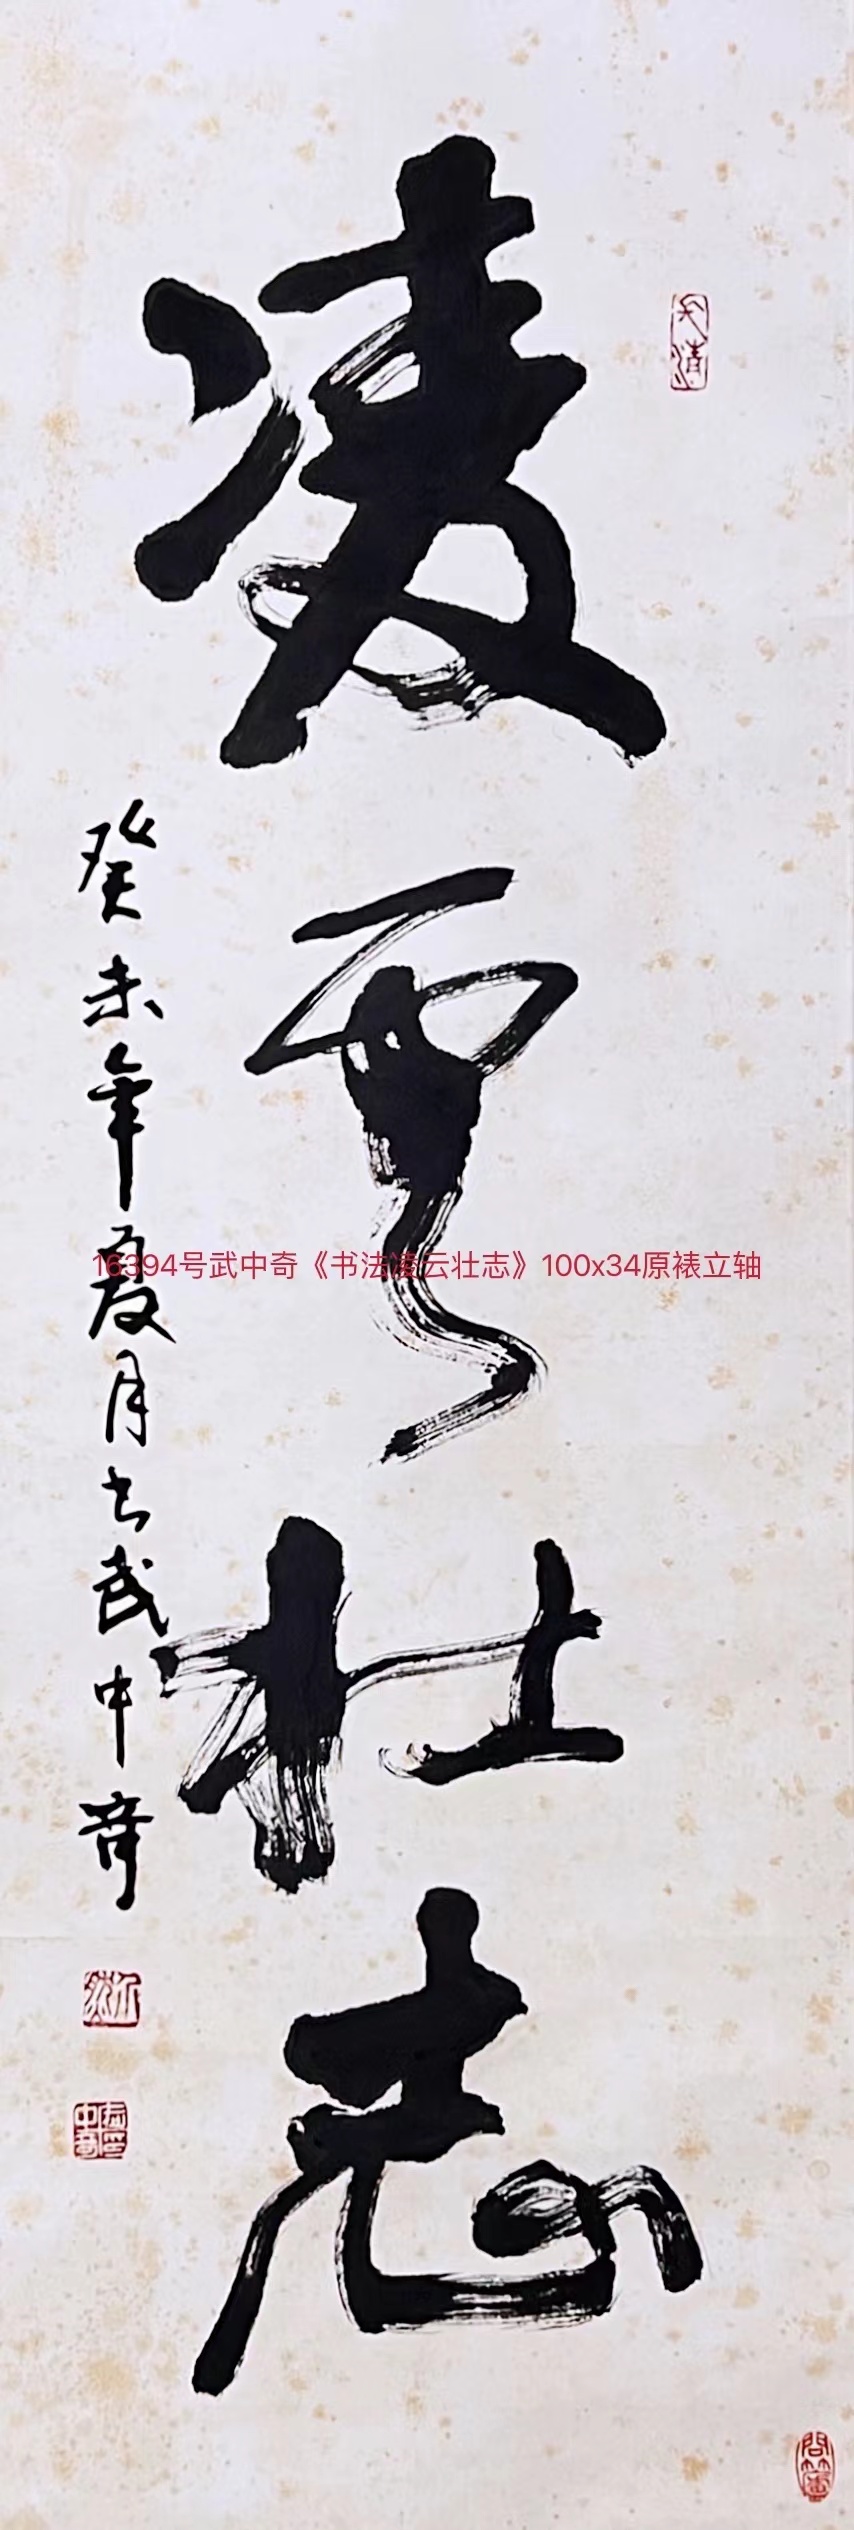 凌雲壯志
癸未年夏月书武中奇
16394号武中奇《书法凌云壮志》100x34原裱立轴